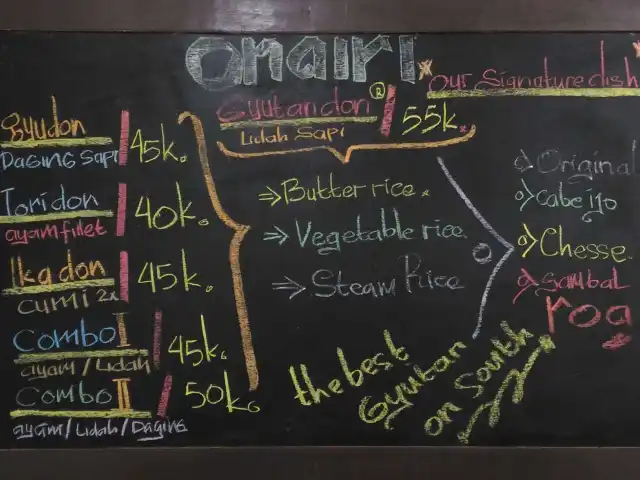 OMAIRI
Our Signature dish
Gyutandon ® 55k.
Lidah Sapi
Gyudon 45k.
Daging Sapi
Toridon 40k.
ayam fillet
Ika don 45k.
cumi 2x
Combo I 45k.
ayam / Lidah
Combo II 50k.
ayam / Lidah / Daging
⇒ Butter rice.
⇒ Vegetable rice.
⇒ Steam Rice
Original
cabe ijo
Chesse.
Sambal
roa
the best
Gyutan
on South